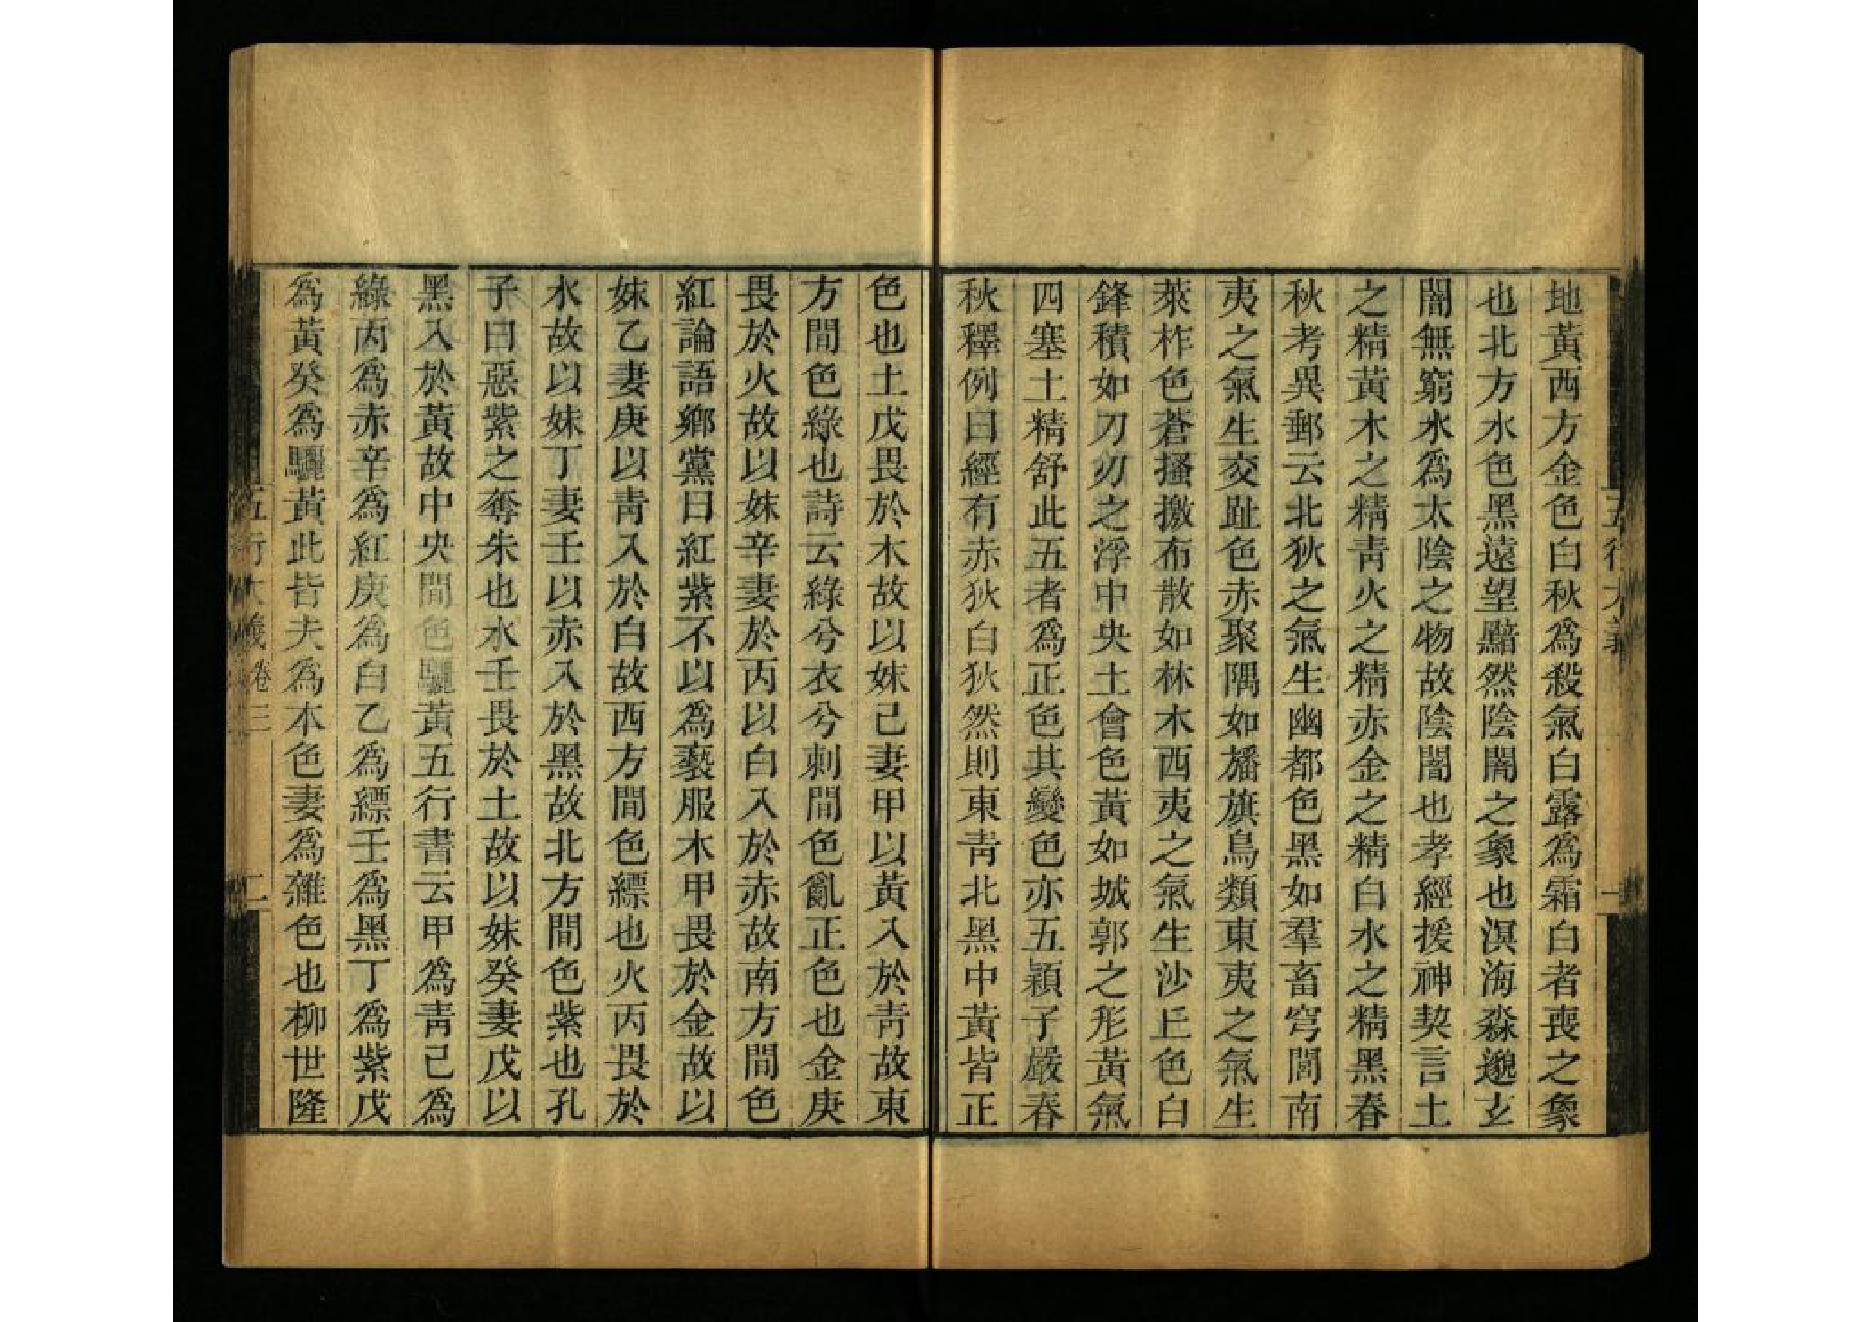 五行大義
一
地黃西方金色白秋爲殺氣白露爲霜白者喪之象
也北方水色黑遠望黯然陰闇之象也溟海淼邈玄
闇無窮水爲太陰之物故陰闇也孝經援神契言土
之精黃木之精青火之精赤金之精白水之精黑春
秋考異郵云北狄之氣生幽都色黑如羣畜穹閭南
夷之氣生交趾色赤聚隅如旛旗鳥類東夷之氣生
萊柞色蒼搔撽布散如林木西夷之氣生沙丘色白
鋒積如刀刃之浮中央土會色黃如城郭之形黃氣
四塞土精舒此五者爲正色其變色亦五穎子嚴春
秋釋例曰經有赤狄白狄然則東青北黑中黃皆正
色也土戊畏於木故以妹己妻甲以黃入於青故東
方間色綠也詩云綠兮衣兮刺間色亂正色也金庚
畏於火故以妹辛妻於丙以白入於赤故南方間色
紅論語鄉黨曰紅紫不以爲褻服木甲畏於金故以
妹乙妻庚以青入於白故西方間色縹也火丙畏於
水故以妹丁妻壬以赤入於黑故北方間色紫也孔
子曰惡紫之奪朱也水壬畏於土故以妹癸妻戊以
黑入於黃故中央間色驪黃五行書云甲爲青己爲
綠丙爲赤辛爲紅庚爲白乙爲縹壬爲黑丁爲紫戊
爲黃癸爲驪黃此皆夫爲本色妻爲雜色也柳世隆
五行大義卷三
二